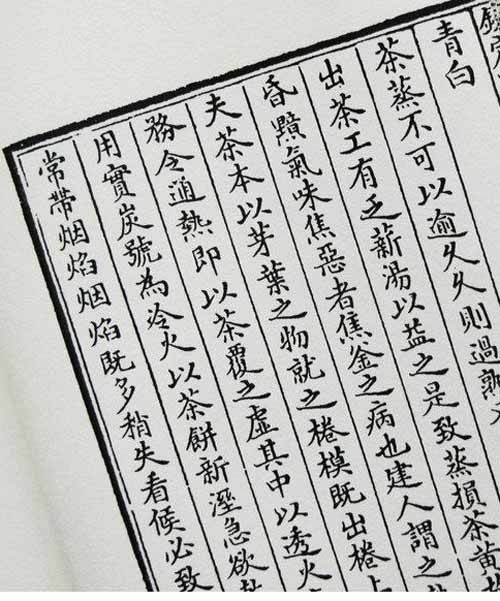 青白
茶蒸不可以逾久久則過熟
出茶工有乏薪湯以益之是致蒸損茶黃
昏黰氣味焦惡者焦釜之病也建人謂之
夫茶本以芽葉之物就之棬模既出棬
務令通熱即以茶覆之虛其中以透火
用實炭號為冷火以茶餅新溼急欲
常帶烟焰烟焰既多稍失看候必致